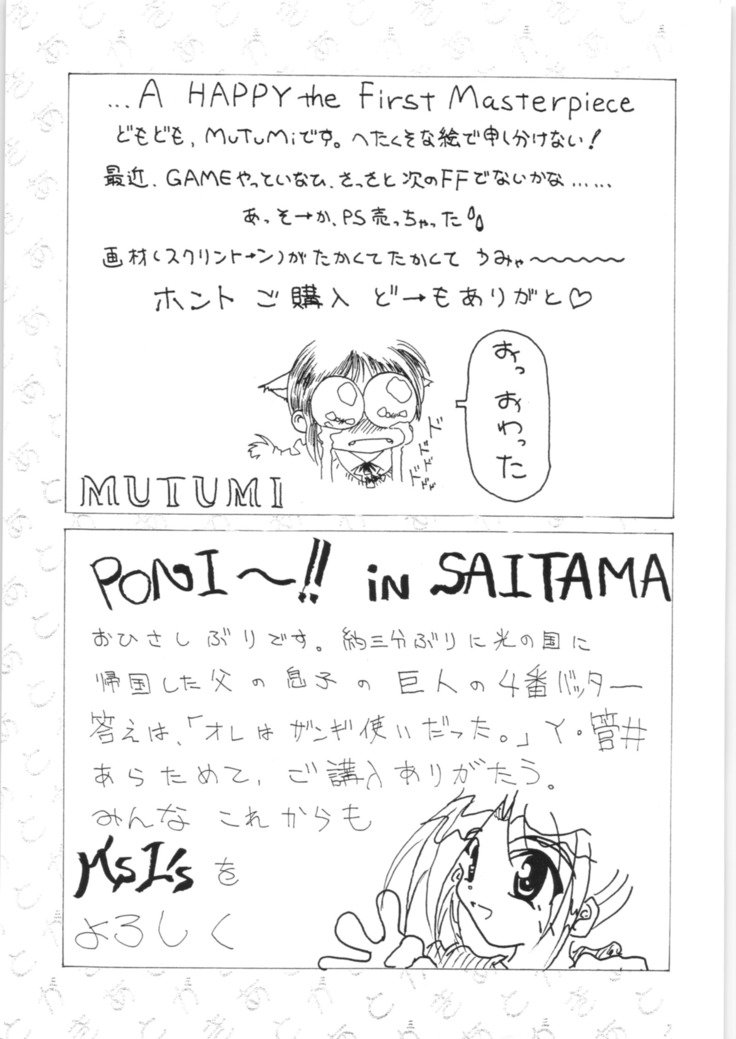 ...A HAPPY the First Masterpiece
どもども、MUTUMiです。へたくそな絵で申し分けない!
最近、GAMEやっていなひ、さっさと次のFFでないかな……
あっそーか、PS売っちゃった
画材(スクリントーン)がたかくてたかくて うみゃ〜〜〜〜〜
ホント ご購入 どーもありがと♡
おっ
おわった
ドドドド
MUTUMI
PONI〜!! in SAITAMA
おひさしぶりです。約三分ぶりに光の国に
帰国した父の息子の巨人の4番バッター
答えは、「オレはザンギ使いだった。」Y・菅井
あらためて、ご講入ありがたう。
みんな これからも
M'sI'sを
よろしく